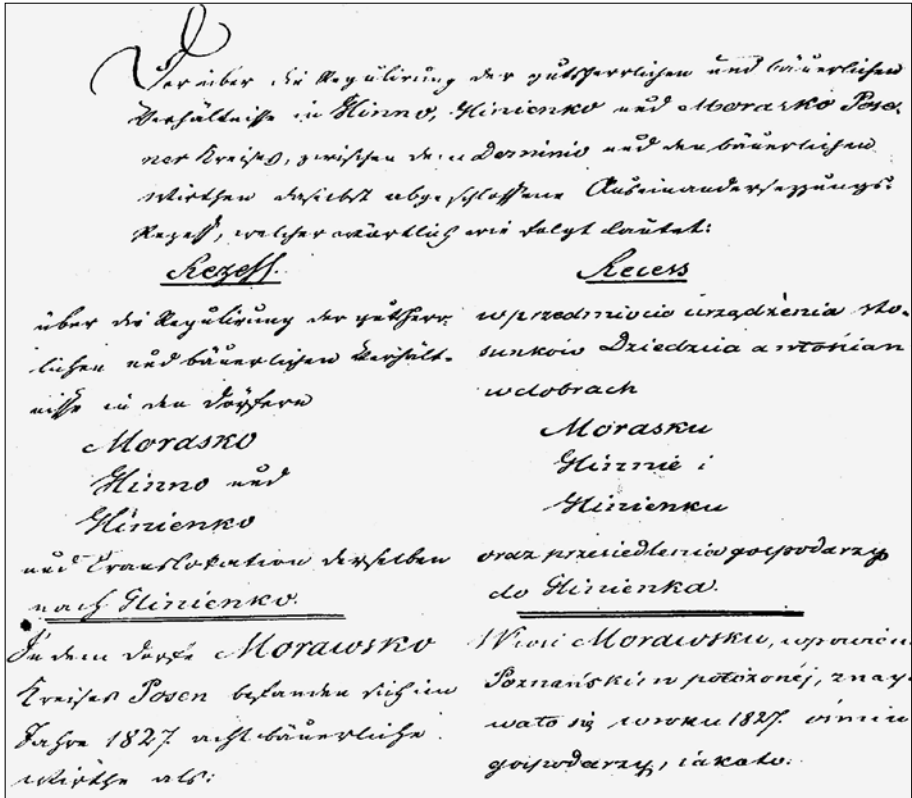 Der über die Regulirung der gutsherrlichen und bäuerlichen
Verhältnisse in Glinno, Glinienko und Morasko Pose-
ner Kreises, zwischen dem Dominio und den bäuerlichen
Wirthen daselbst abgeschlossene Auseinandersezzungs-
Rezeß, welcher wörtlich wie folgt lautet:
Rezeß.
über die Regulirung der gutsherr-
lichen und bäuerlichen Verhält-
nisse in den Dörfern
Morasko
Glinno und
Glinienko
und Translokation derselben
nach Glinienko.
In dem Dorfe Morawsko
Kreises Posen befanden sich im
Jahre 1827 acht bäuerliche
Wirthe als:
Recess
w przedmiocie urządzenia sto-
sunków Dziedzica a włościan
w dobrach
Morasku
Glinnie i
Glinienku
oraz przesiedlenia gospodarzy
do Glinienka.
Wieś Morawsku, w powiecie
Poznańskim położonéj, znay-
wało się w roku 1827 ośmiu
gospodarzy, iako to: